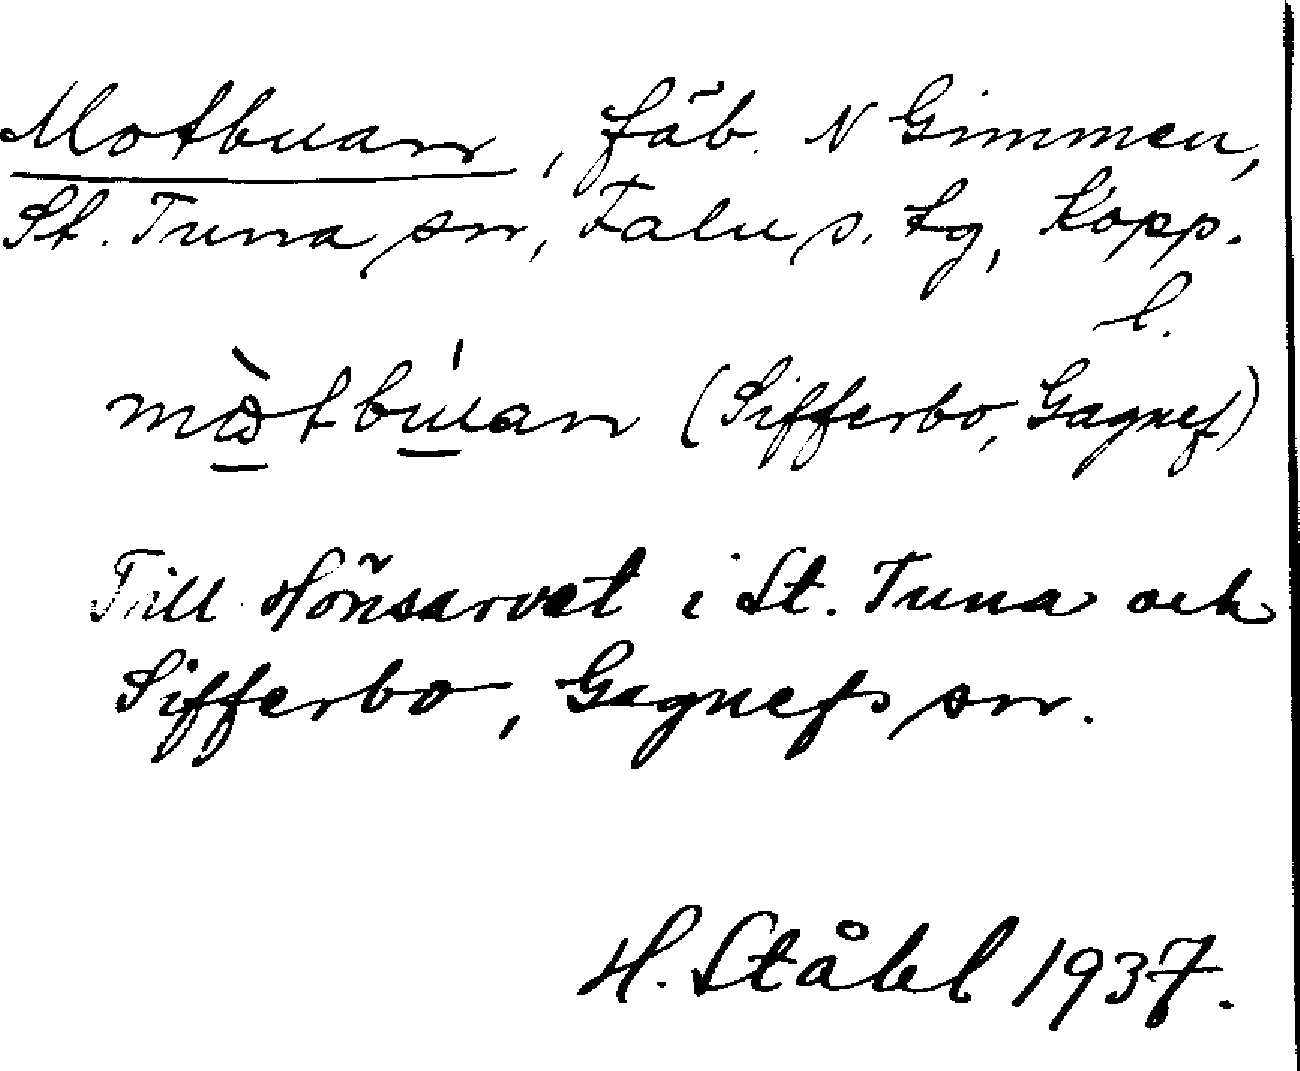 Motbuan, fäb. N Gimmen,
St. Tuna sn, Falu s. tg, Kopp.
l.
(Sifferbo, Gagnef)
Till Hönsarvet i St. Tuna och
Sifferbo, Gagnefs sn.
H. Ståhl 1937.